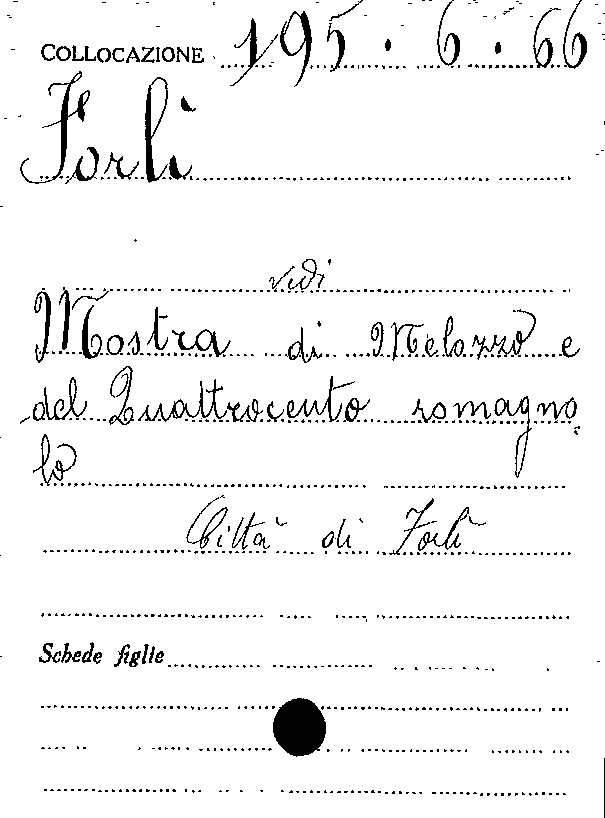 COLLOCAZIONE 195.6.66
Forlì
vedi
Mostra di Melozzo e
del Quattrocento romagno
lo
Città di Forlì
Schede figlie